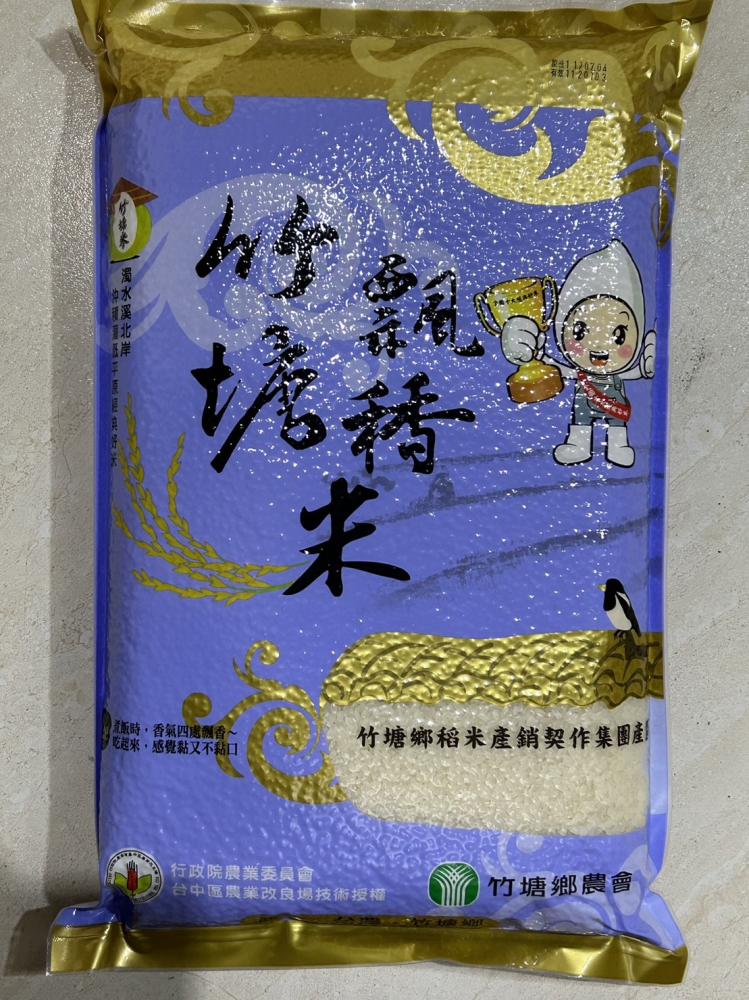 製造1120704
有效1120103
竹塘米
濁水溪北岸
沖積扇平原經典好米
竹塘
飄香
米
煮飯時，香氣四處飄香～
吃起來，感覺黏又不黏口
竹塘鄉稻米產銷契作集團產
行政院農業委員會
台中區農業改良場技術授權
竹塘鄉農會